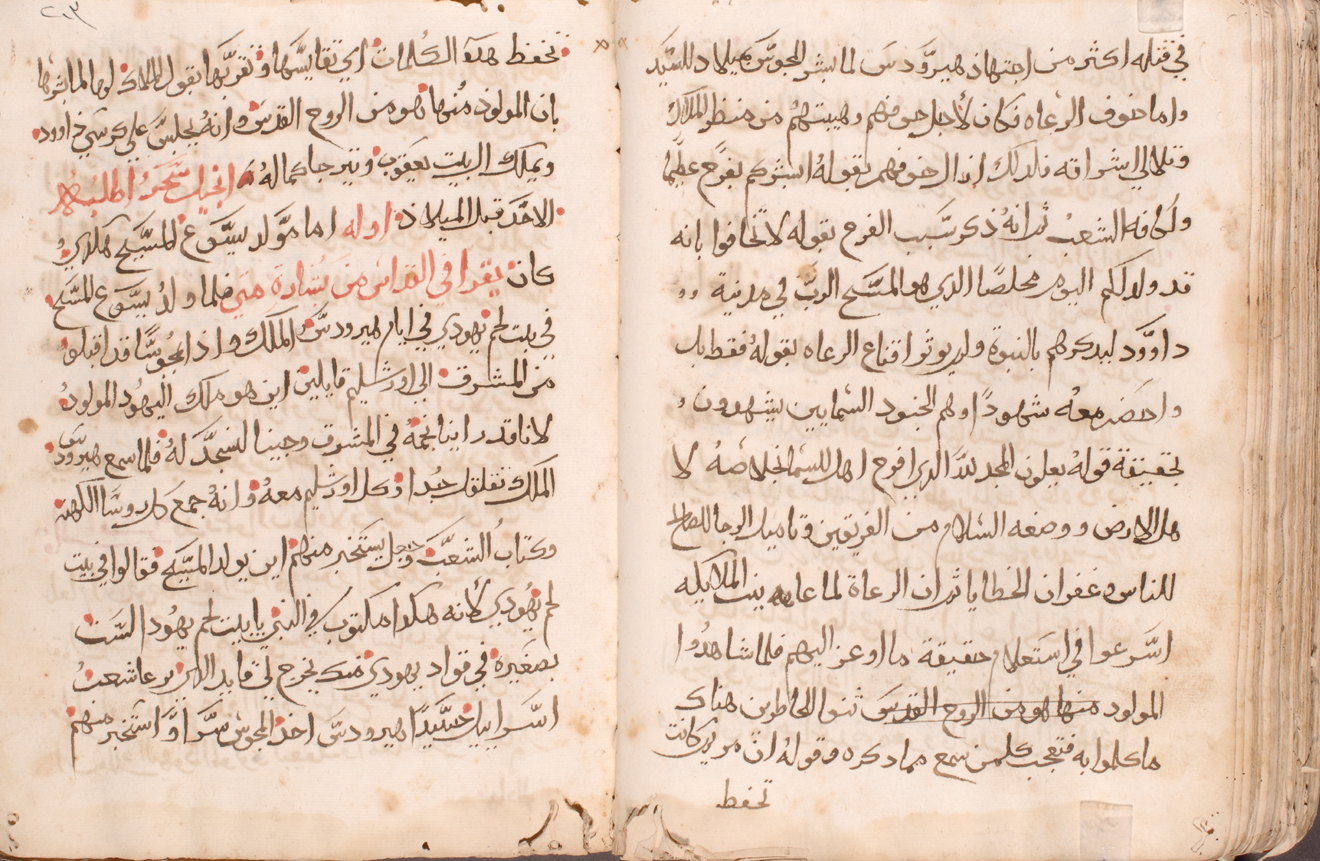 في قتله اكثر من اجتهاد هيرودس لما بشر المجوس بميلاد للسيد
واما خوف الرعاه فكان لأجل خوفهم وهيبتهم من منظر الملاك
وتلالي اشراقه فلدلك ازال خوفهم بقوله ابشركم بفرح عظيم
ولكافه الشعب ثم انه ذكر سبب الفرح بقوله لا تخافوا بانه
قد ولد لكم اليوم مخلصًا الدي هو المسيح الرب في مدينة
داوود ليدكرهم بالنبوة ولم يوثر اقناع الرعاه بقوله فقط بل
واحضر معه شهودًا وهم الجنود السمايين يشهدون
بحقيقة قوله يعلون المجد لله الدي افرح اهل السما بخلاصه لا
هل الارض ووضعه السلام من الفريقين وتاميل الرجا الصالح
للناس وغفران الخطايا ثم ان الرعاة لما عاينوا الملايكه
اسرعوا في استعلام حقيقة ما اوعز اليهم فلما شاهدوا
المولود منها هو من الروح القدس ثنوا الحاظرين هناك
ما كلموا به فتعجب كلمن سمع مما دكره وقوله ان مريم كانت
تحفط
٢١٣
تحفظ هده الكلمات اي تقايسها وتقربها بقول الملاك لها لما بشرها
بان المولود منها هو من الروح القدس وانه يجلس علي كرسي داوود
ويملك ال بيت يعقوب وتيرجا كماله انجيل سحر اطلبه
الاحد قبل الميلاد اوله اما مولد يسوع المسيح هكدي
كان يقرا في القداس من بشارة متي فلما ولد يسوع المسيح
في بيت لحم يهودي في ايام هيرودس الملك واذا مجوسًا قد اقبلو
من المشرق الى اورشليم قايلين اين هو ملك اليهود المولود
لانا قد راينا نجمه في المشرق وجينا لنسجد له فلما سمع هيرودس
الملك تقلق جدا وكل اورشليم معه وانه جمع كل روسا الكهنه
وكتاب الشعب وجعل يستخبر منهم اين يولد المسيح فقالوا في بيت
لحم يهودي لأنه هكدا مكتوب في النبي يا بيت لحم يهودا لست
بصغيره في قواد يهودي منك يخرج لي قايد الدي يرعا شعب
اسراييل حينيدًا هيرودس احد المجوس سرا واستخبر منهم